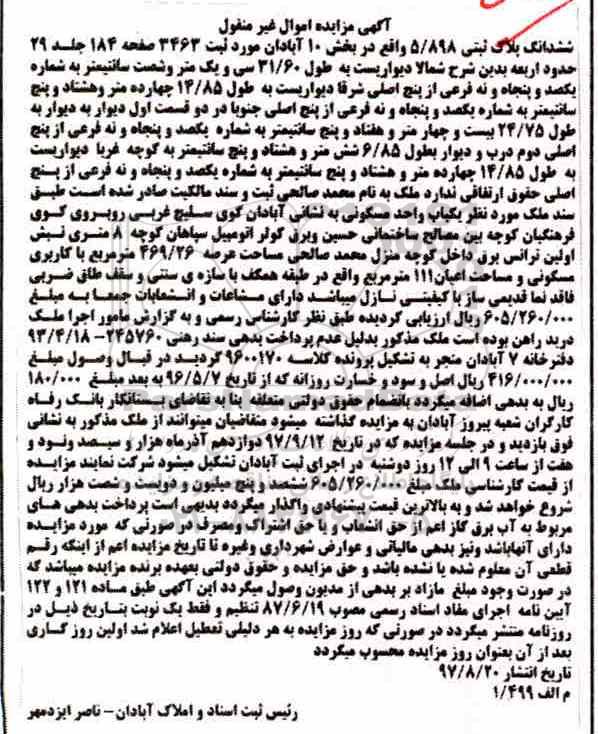 آگهی مزایده اموال غیر منقول
ششدانگ پلاک ثبتی ۵/۸۹۸ واقع در بخش ۱۰ آبادان مورد ثبت ۳۴۶۳ صفحه ۱۸۴ جلد ۲۹
حدود اربعه بدین شرح شمالا دیواریست به طول ۳۱/۶۰ سی و یک متر وشصت سانتیمتر به شماره
یکصد و پنجاه و نه فرعی از پنج اصلی شرقا دیواریست به طول ۱۴/۸۵ چهارده متر وهشتاد و پنج
سانتیمتر به شماره یکصد و پنجاه و نه فرعی از پنج اصلی جنوبا در دو قسمت اول دیوار به دیوار به
طول ۲۴/۷۵ بیست و چهار متر و هفتاد و پنج سانتیمتر به شماره یکصد و پنجاه و نه فرعی از پنج
اصلی دوم درب و دیوار بطول ۶/۸۵ شش متر و هشتاد و پنج سانتیمتر به کوچه غربا دیواریست
به طول ۱۴/۸۵ چهارده متر و هشتاد و پنج سانتیمتر به شماره یکصد و پنجاه و نه فرعی از پنج
اصلی حقوق ارتفاقی ندارد ملک به نام محمد صالحی ثبت و سند مالکیت صادر شده است طبق
سند ملک مورد نظر یکباب واحد مسکونی به نشانی آبادان کوی سلیچ غربی روبروی کوی
فرهنگیان کوچه بین مصالح ساختمانی حسین وبرق کولر اتومبیل سپاهان کوچه ۸ متری نبش
اولین ترانس برق داخل کوچه منزل محمد صالحی مساحت عرصه ۴۶۹/۲۶ مترمربع با کاربری
مسکونی و مساحت اعیان۱۱۱ مترمربع واقع در طبقه همکف با سازه ی سنتی و سقف طاق ضربی
فاقد نما قدیمی ساز با کیفیتی نازل میباشد دارای مشاعات و انشعابات جمعا به مبلغ
۶۰۵/۲۶۰/۰۰۰ ریال ارزیابی گردیده طبق نظر کارشناس رسمی و به گزارش مامور اجرا ملک
درید راهن بوده است ملک مذکور بدلیل عدم پرداخت بدهی سند رهنی ۲۴۵۷۶۰- ۹۳/۴/۱۸
دفترخانه ۷ آبادان منجر به تشکیل پرونده کلاسه ۹۶۰۰۱۷۰ گردید در قبال وصول مبلغ
۴۱۶/۰۰۰/۰۰۰ ریال اصل و سود و خسارت روزانه که از تاریخ ۹۶/۵/۷ به بعد مبلغ ۱۸۰/۰۰۰
ریال به بدهی اضافه میگردد بانضمام حقوق دولتی متعلقه بنا به تقاضای بستانکار بانک رفاه
کارگران شعبه پیروز آبادان به مزایده گذاشته میشود متقاضیان میتوانند از ملک مذکور به نشانی
فوق بازدید و در جلسه مزایده که در تاریخ ۹۷/۹/۱۲ دوازدهم آذرماه هزار و سیصد ونود و
هفت از ساعت ۹ الی ۱۲ روز دوشنبه در اجرای ثبت آبادان تشکیل میشود شرکت نمایند مزایده
از قیمت کارشناسی ملک مبلغ ۶۰۵/۲۶۰/۰۰۰ ششصد و پنج میلیون و دویست و شصت هزار ریال
شروع خواهد شد و به بالاترین قیمت پیشنهادی واگذار میگردد بدیهی است پرداخت بدهی های
مربوط به آب برق گاز اعم از حق انشعاب و یا حق اشتراک ومصرف در صورتی که مورد مزایده
دارای آنهاباشد ونیز بدهی مالیاتی و عوارض شهرداری وغیره تا تاریخ مزایده اعم از اینکه رقم
قطعی آن معلوم شده یا نشده باشد و حق مزایده و حقوق دولتی بعهده برنده مزایده میباشد که
در صورت وجود مبلغ مازاد بر بدهی از مدیون وصول میگردد این آگهی طبق ماده ۱۲۱ و ۱۲۲
آیین نامه اجرای مفاد اسناد رسمی مصوب ۸۷/۶/۱۹ تنظیم و فقط یک نوبت بتاریخ ذیل در
روزنامه منتشر میگردد در صورتی که روز مزایده به هر دلیلی تعطیل اعلام شد اولین روز کاری
بعد از آن بعنوان روز مزایده محسوب میگردد
تاریخ انتشار ۹۷/۸/۲۰
م الف ۱/۴۹۹
رئیس ثبت اسناد و املاک آبادان- ناصر ایزدمهر